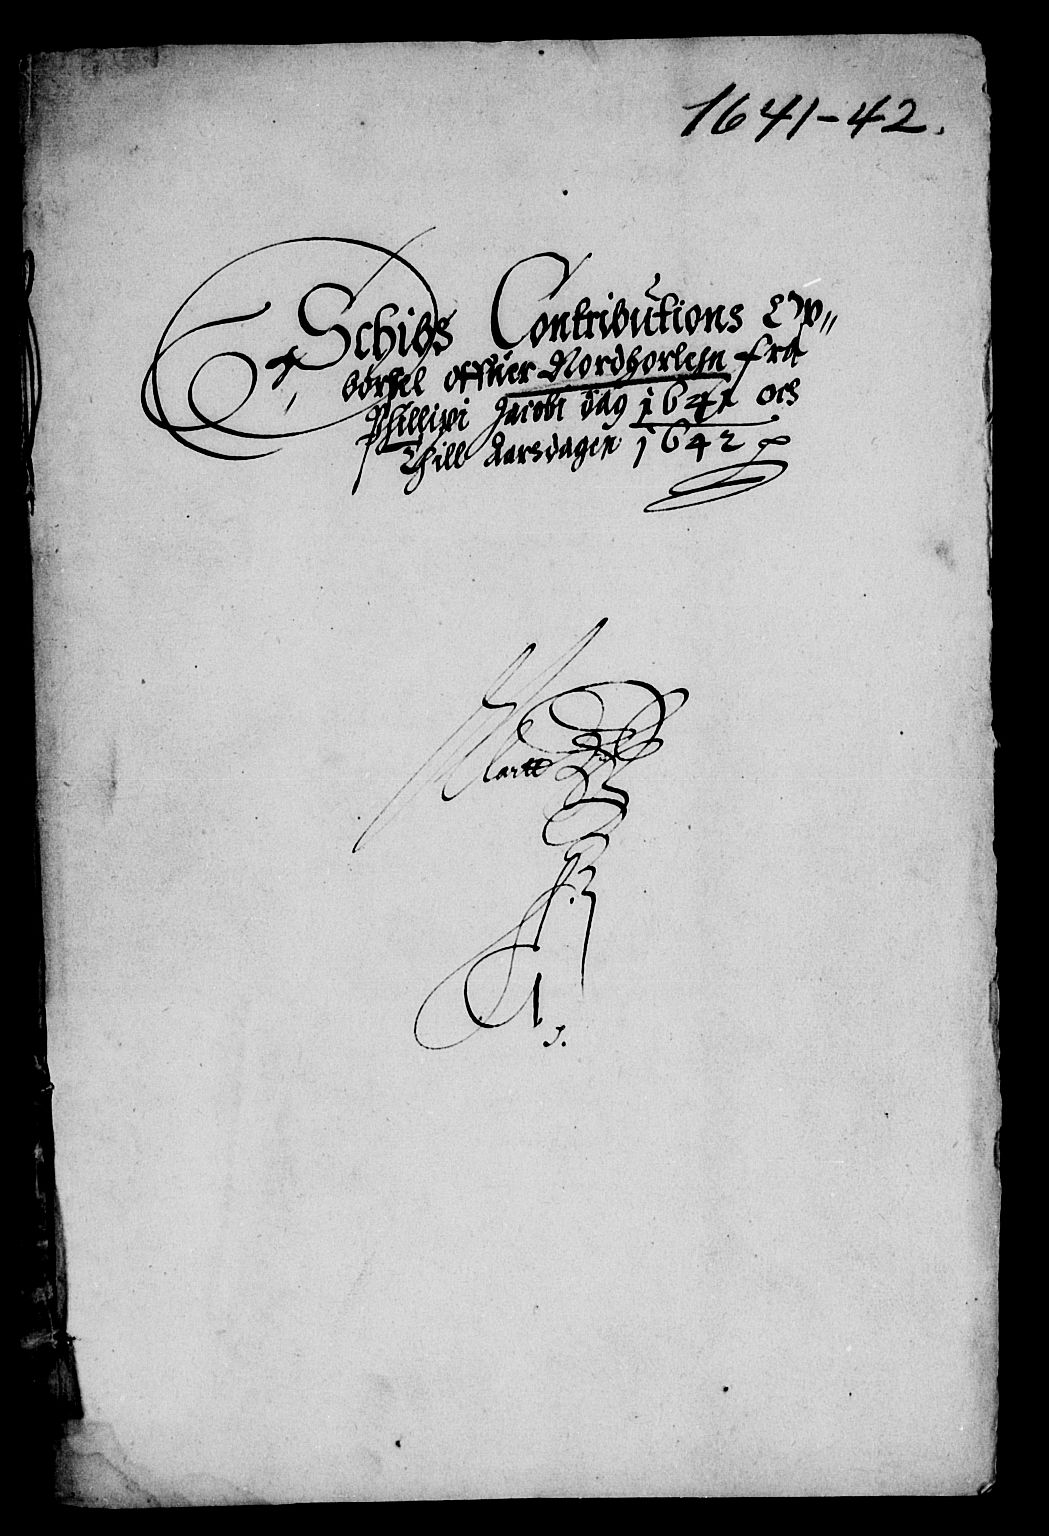 1641-42.
Schibs Contributions Op„
börsel offuer Nordhorlehn fra
Phillippi Jacobi dag 1641 och
Thill Aarsdagen 1642
Clartt